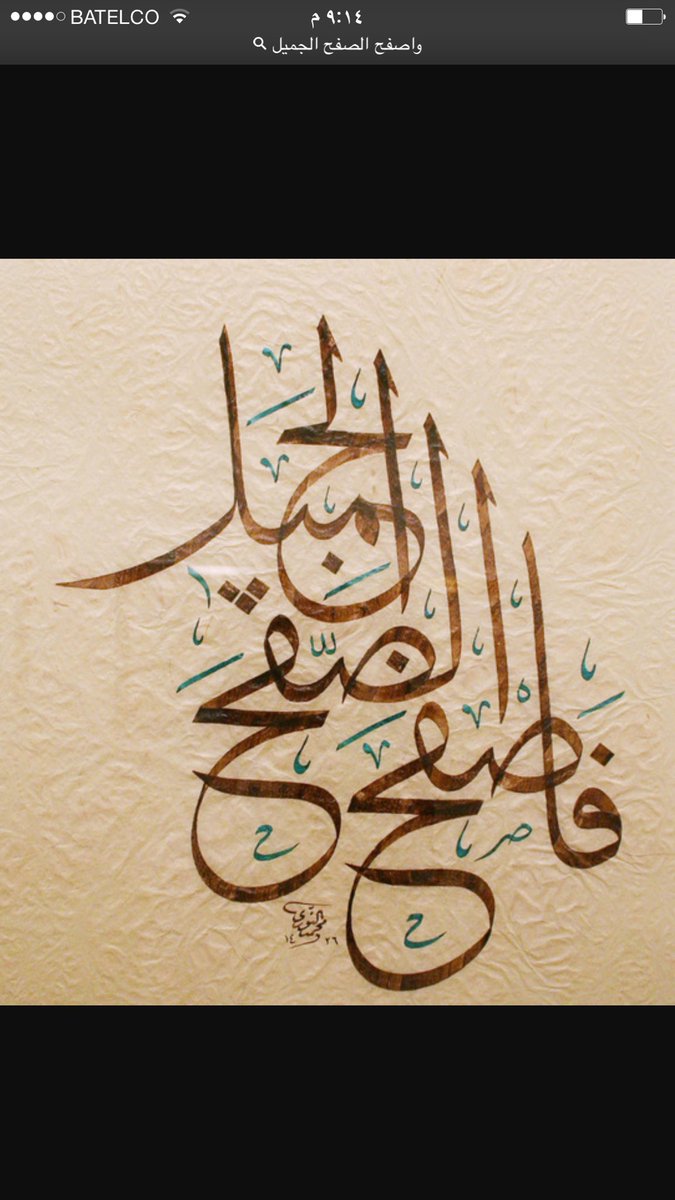 BATELCO
٩:١٤ م
واصفح الصفح الجميل
فَاصْفَحِ
الصَّفْحَ
الْجَمِيلَ
١٤٢٦